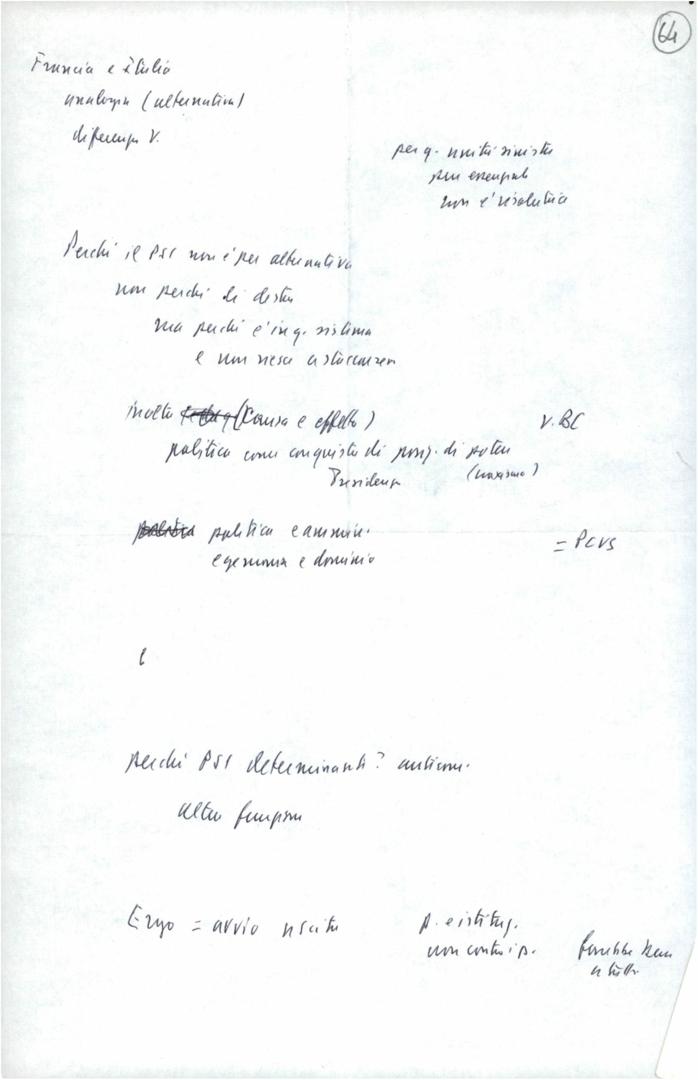 64
Francia e Italia
analogia (alternativa)
differenza V.
per q. unità sinistra
pur essenziale
non è risolutiva
Perché il PSI non è per alternativa
non perché di destra
ma perché è in q. sistema
e non riesce a staccarsi
inoltre (causa e effetto)
V. BC
politica come conquista di posiz. di potere
Presidenza
politica politica e ammin.
egemonia e dominio
= PCUS
perché PSI determinante? anticom.
altra funzione
Ergo = avvio uscita
p. e istituz.
non contro i p.
farebbe bene
a tutti